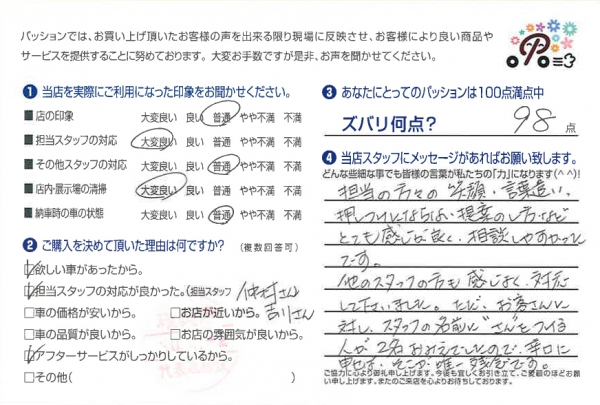 パッションでは、お買い上げ頂いたお客様の声を出来る限り現場に反映させ、お客様により良い商品や
サービスを提供することに努めております。大変お手数ですが是非、お声を聞かせてください。
❶ 当店を実際にご利用になった印象をお聞かせください。
■店の印象 大変良い 良い 普通 やや不満 不満
■担当スタッフの対応 大変良い 良い 普通 やや不満 不満
■その他スタッフの対応 大変良い 良い 普通 やや不満 不満
■店内・展示場の清掃 大変良い 良い 普通 やや不満 不満
■納車時の車の状態 大変良い 良い 普通 やや不満 不満
❷ ご購入を決めて頂いた理由は何ですか？ (複数回答可)
☑欲しい車があったから。
☑担当スタッフの対応が良かった。(担当スタッフ 仲村さん
吉川さん
□車の価格が安いから。 □お店が近いから。
□車の品質が良いから。 □お店の雰囲気が良いから。
☑アフターサービスがしっかりしているから。
□その他( )
❸ あなたにとってのパッションは100点満点中
ズバリ何点？ 98点
❹ 当店スタッフにメッセージがあればお願い致します。
どんな些細な事でも皆様の言葉が私たちの「力」になります(^^)!
担当の方々の笑顔、言葉遣い、
押しつけにならない提案の仕方など
とても感じが良く、相談しやすかった
です。
他のスタッフの方も感じよく、対応
して下さいました。ただ、お客さんに
対し、スタッフの名前に"さん"をつける
人が2名おみえでしたので、辛口に
申せば、そこが唯一残念です。
ご協力に心より御礼申し上げます。今後も宜しくお引き立て、ご愛顧のほどお願
い申し上げます。またのご来店を心よりお待ちしております。